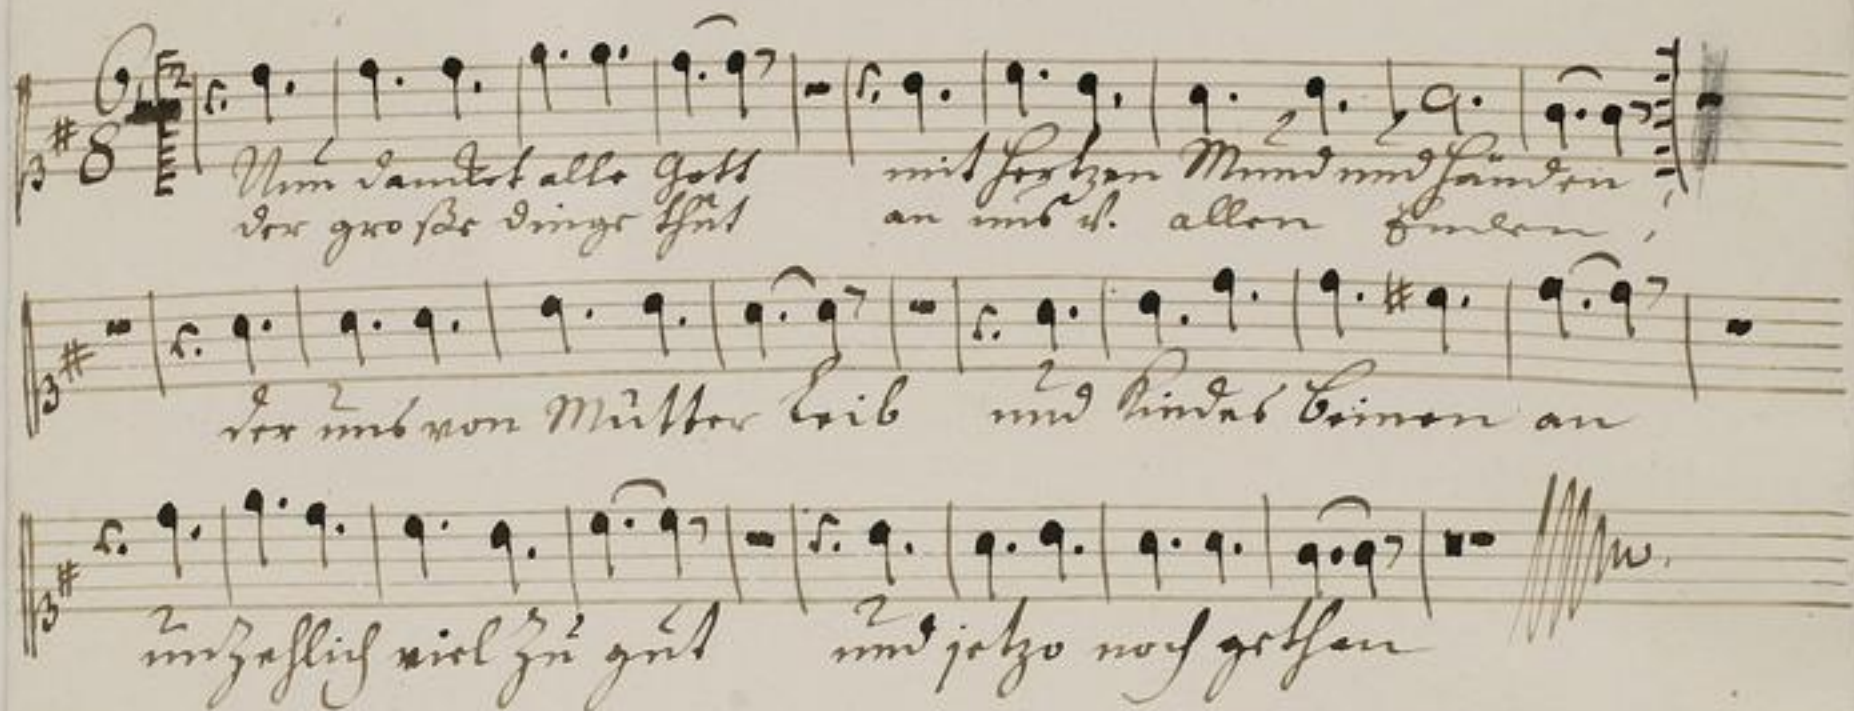 6
8
Nun dancket alle Gott mit Hertzen Mund und Händen
der große dinge thut an uns v. allen Enden,
der uns von Mutter Leib und Kindes beinen an
unzehlich viel zu gut und jetzo noch gethan